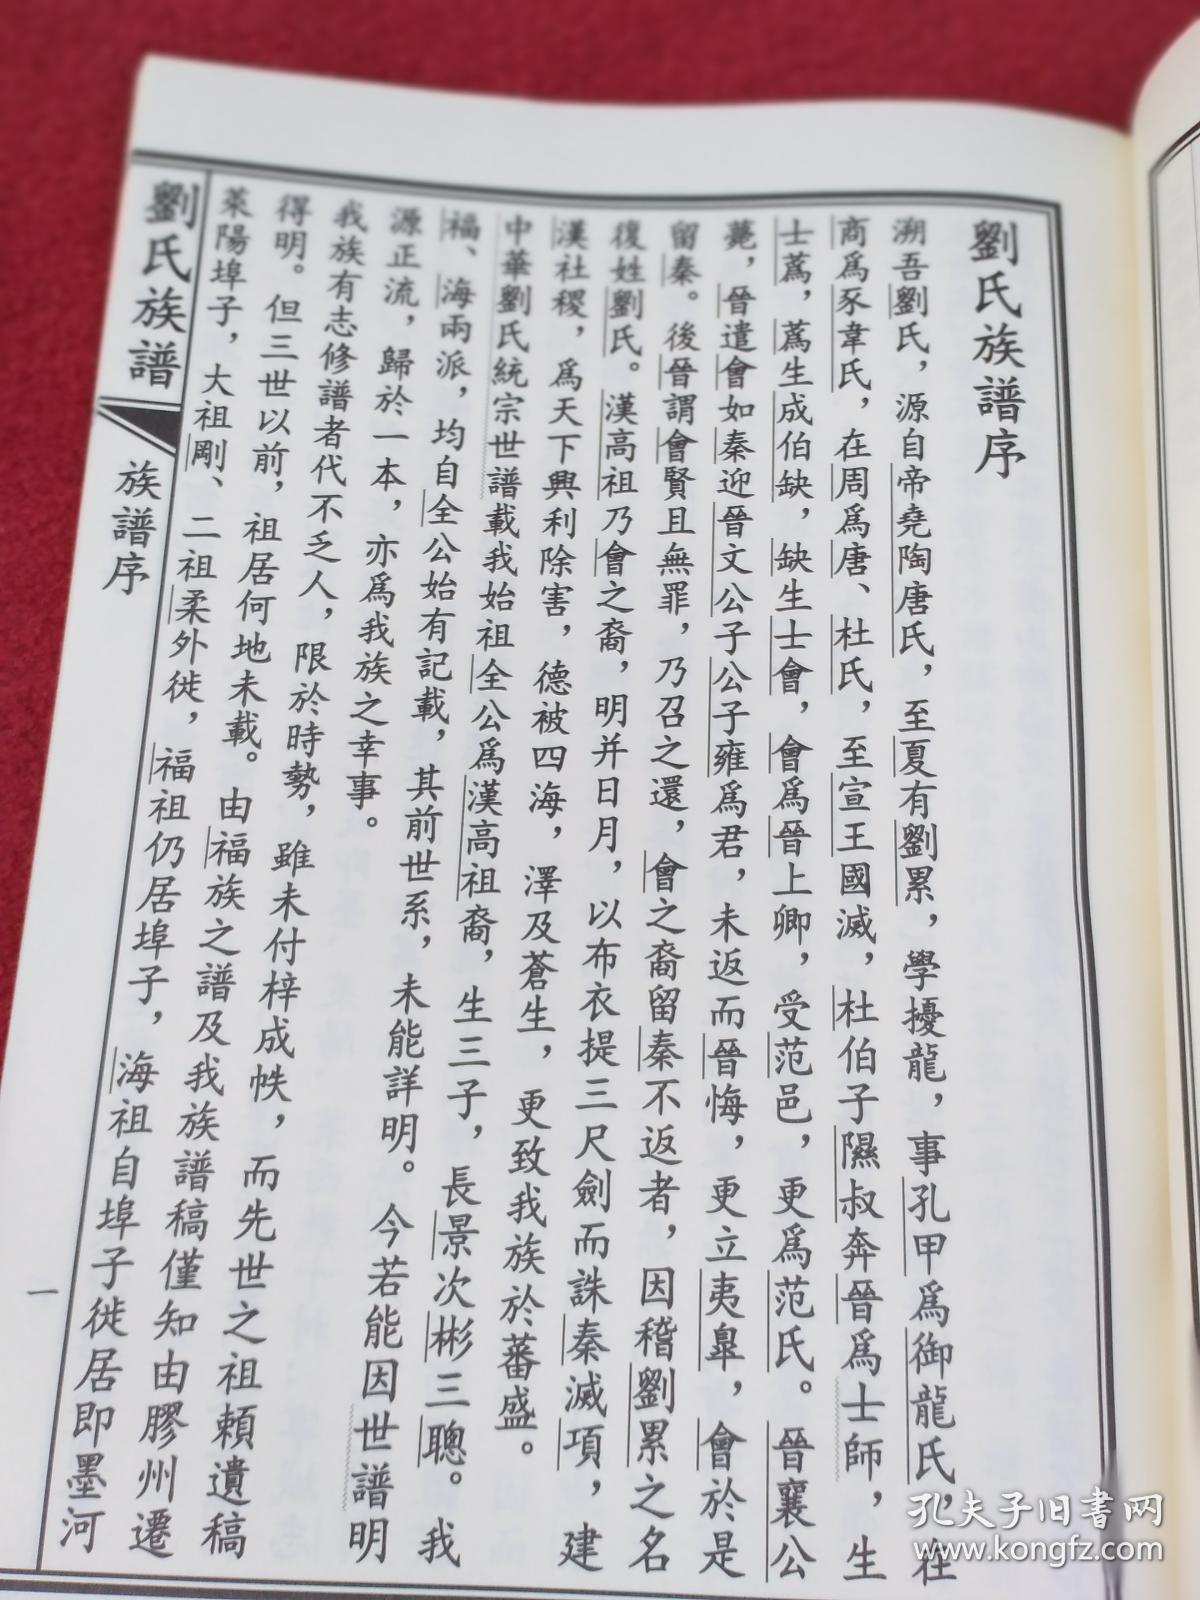 劉氏族譜序
溯吾劉氏，源自帝堯陶唐氏，至夏有劉累，學擾龍，事孔甲爲御龍氏，在
商爲豕韋氏，在周爲唐、杜氏，至宣王國滅，杜伯子隰叔奔晉爲士師，生
士蒍，蒍生成伯缺，缺生士會，會爲晉上卿，受范邑，更爲范氏。晉襄公
薨，晉遣會如秦迎晉文公子公子雍爲君，未返而晉悔，更立夷臯，會於是
留秦。後晉謂會賢且無罪，乃召之還，會之裔留秦不返者，因稽劉累之名
復姓劉氏。漢高祖乃會之裔，明并日月，以布衣提三尺劍而誅秦滅項，建
漢社稷，爲天下興利除害，德被四海，澤及蒼生，更致我族於蕃盛。
中華劉氏統宗世譜載我始祖全公爲漢高祖裔，生三子，長景次彬三聰。我
福、海兩派，均自全公始有記載，其前世系，未能詳明。今若能因世譜明
源正流，歸於一本，亦爲我族之幸事。
我族有志修譜者代不乏人，限於時勢，雖未付梓成帙，而先世之祖賴遺稿
得明。但三世以前，祖居何地未載。由福族之譜及我族譜稿僅知由膠州遷
萊陽埠子，大祖剛、二祖柔外徙，福祖仍居埠子，海祖自埠子徙居即墨河
劉氏族譜
族譜序
一
孔夫子旧书网
www.kongfz.com